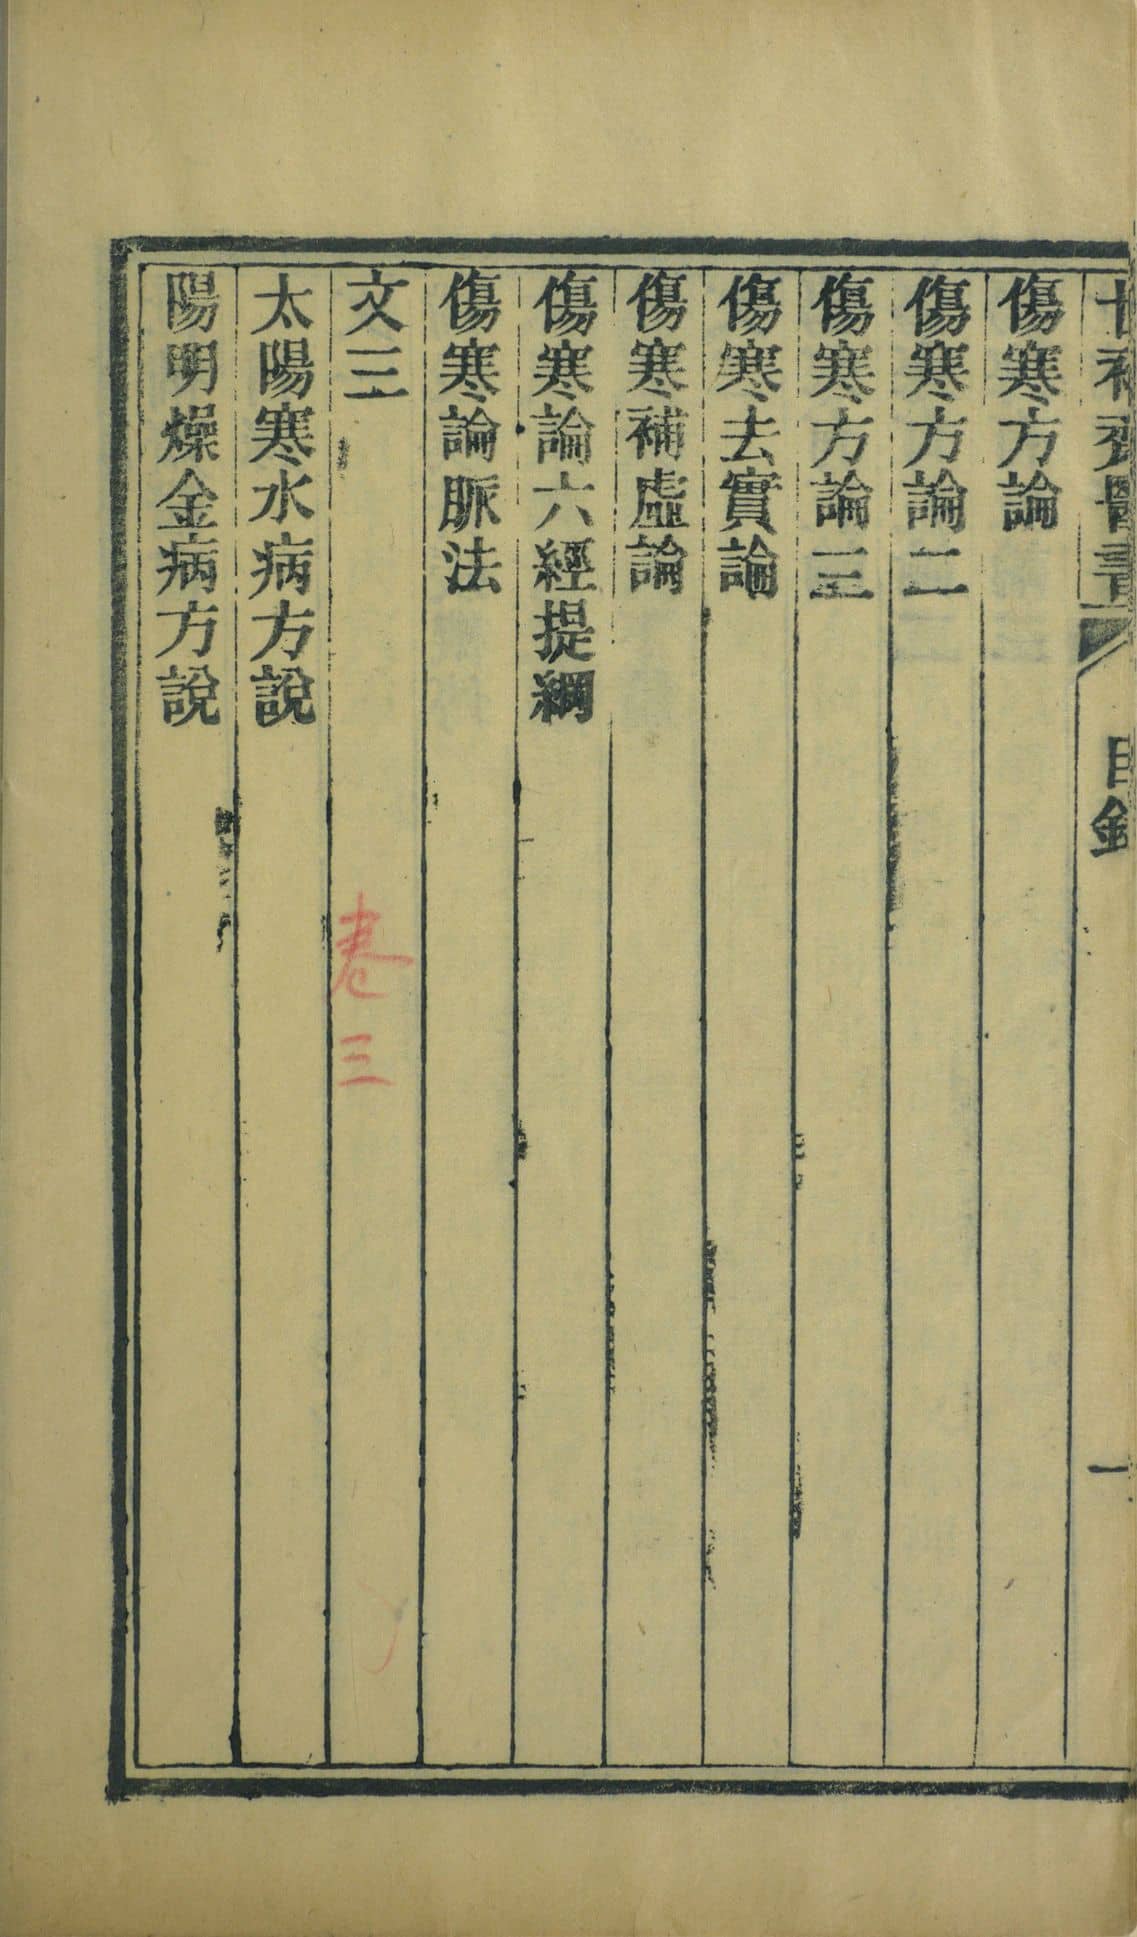 世補齋醫書 目錄 一
傷寒方論
傷寒方論二
傷寒方論三
傷寒去實論
傷寒補虛論
傷寒論六經提綱
傷寒論脈法
文三
卷三
太陽寒水病方說
陽明燥金病方說